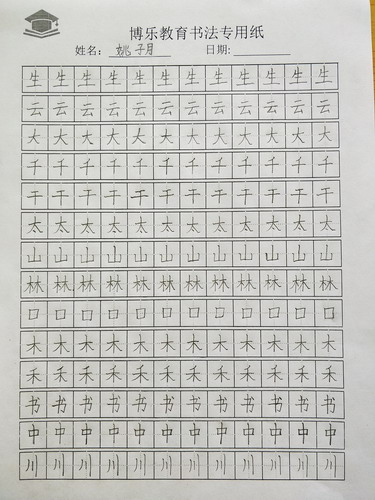 博乐教育书法专用纸
姓名: 姚子月 日期:
生生生生生生生生生生生生
云云云云云云云云云云云云
大大大大大大大大大大大大
千千千千千千千千千千千千
干干干干干干干干干干干干
太太太太太太太太太太太太
山山山山山山山山山山山山
林林林林林林林林林林林林
口口口口口口口口口口口口
木木木木木木木木木木木木
禾禾禾禾禾禾禾禾禾禾禾禾
书书书书书书书书书书书书
中中中中中中中中中中中中
川川川川川川川川川川川川